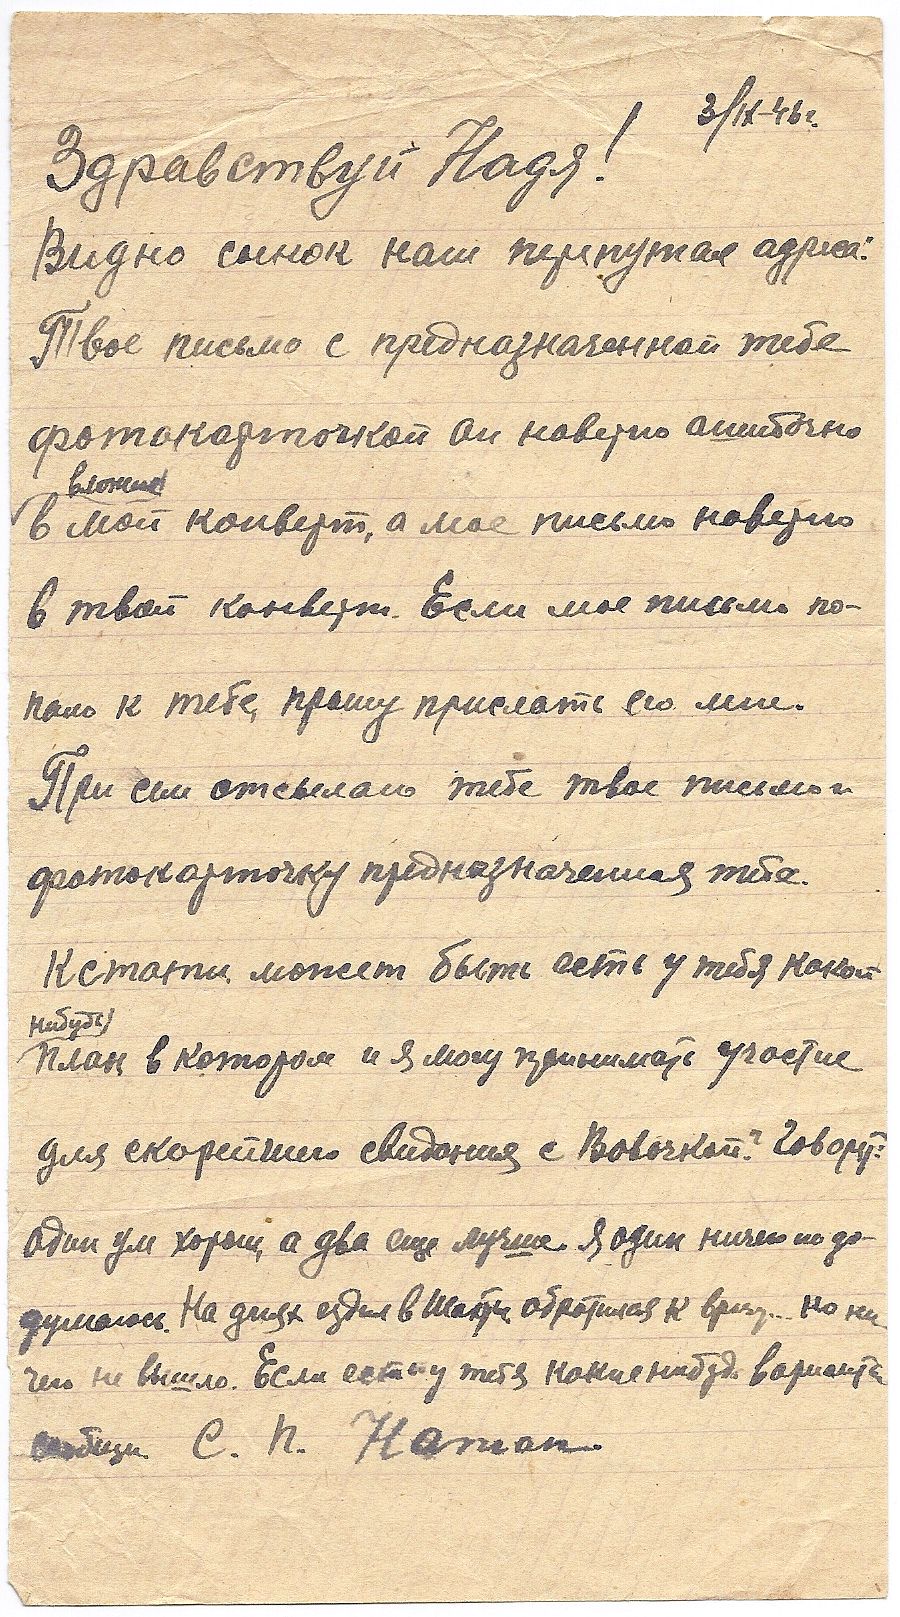 3/IX-46г.
Здравствуй Надя!
Видно сынок наш перепутал адреса:
Твое письмо с предназначенной тебе
фотокарточкой он наверно ошибочно
вложил
в мой конверт, а мое письмо наверно
в твой конверт. Если мое письмо по-
пало к тебе, прошу прислать его мне.
При сем отсылаю тебе твое письмо и
фотокарточку предназначенная тебе.
Кстати, может быть есть у тебя какой
нибудь
план, в котором и я могу принимать участие
для скорейшего свидания с Вовочкой? Говорят:
один ум хорош, а два еще лучше. Я один ничего не до-
думаюсь. На днях ездил в Шахты, обратился к врачу... но ни
чего не вышло. Если есть у тебя какие нибудь варианты
сообщи. С. П. Натан